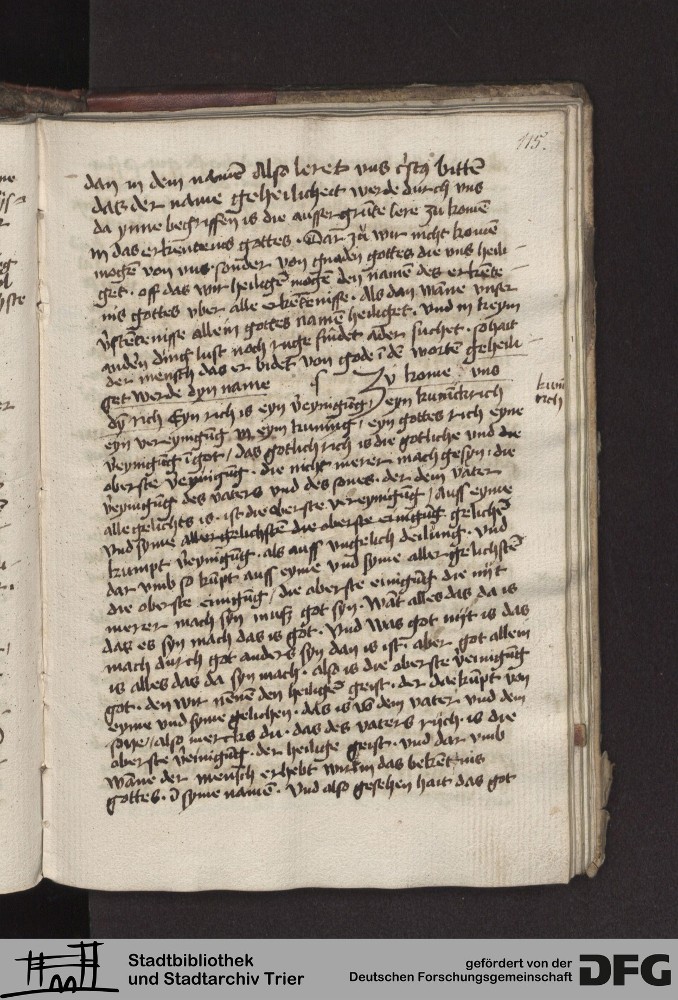 115.
dan in dem namē Also leret vns cristꝯ bittē
das der name geheilicheit werde durch vns
da ynne begriffen is die ausser grūte lere zu komē
in das erkentenis gottes · Dar zu wir nicht komē
mogen von vns · sonder von gnaden gottes die vns heili-
get · off das wir heiligē mogen den namen des erkēte-
nis gottes vber alle erkētenisse · Als dan wāne vnser
v̄stētenisse allein gottes namē heiliget · vnd in keym
andēn ding lust noch ruge findet ader suchet · so hait
der mensch das er bidet von gode ī dē wortē geheili-
get werde dyn name Zu kome vns
dyn rich Eyn rich is eyn v̄eynigūg / eyn kunickrich
kunīc
rich
eyn vereynigūg in eym kunīng / eyn gottes rich eyne
v̄eynigūg ī got / das gotlich rich is die gotliche vnd die
oberste v̄eynigūg · die nicht merer mach gesyn · die
v̄eynigūg des vaters vnd des sones · der dem vater
alle gelichts is · ist die oberste vereynigūg / auss eyme
vnd syme aller gelichstē die oberste einigūg gelichē
kumpt v̄eynigūg · als auss vngelich deilūng · vnd
dar vmb so kūpt auss eyme vnd syme aller gelichstē
die oberste einigūg / die oberste einigūg die nyt
merer mach syn muß got syn · Wāt alles das da is
das es syn mach das is got · Vnd was got nyt is das
mach durch got anders syn dan is ist · aber got allein
is alles das da syn mach · also is die oberste v̄einigūg
got · den wir nēnē den heiligē geist · der doe kūpt von
eyme vnd syme gelichen · das is vs dem vater vnd dem
sone / also mercks du · das des vaters rych · is die
oberste v̄einigūg · der heilige geist · vnd dar vmb
wāne der mensch erhebt wirt in das bekētnis
gottes · ī syme namē · vnd also gesehen hait das got
Stadtbibliothek
und Stadtarchiv Trier
gefördert von der
Deutschen Forschungsgemeinschaft
DFG